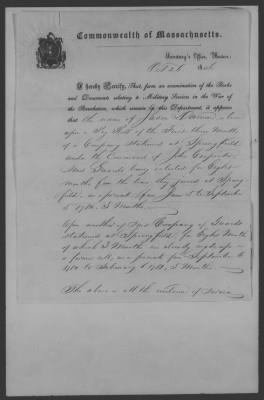 Commonwealth of Massachusetts.
Secretary's Office, Boston,
Oct 26
I hereby Certify, That, from an examination of the Books
and Documents relating to Military Services in the War of
the Revolution, which remain in this Department, it appears
that the name of Jason is borne
upon a Pay Roll of the first three Months
of a Company stationed at Springfield
under the Command of John Carpenter,
said Guards being enlisted for Eight
Months from the time they joined at Spring
field, as a private, from June 5 to September
5 1780, 3 Months.
Upon another of said Company of Guards
stationed at Springfield, for Eight Months
of which 3 Months are already made up in a
former roll, as a private from September 6
1780 to February 6 1781, 5 Months.
The above is all the evidence of service